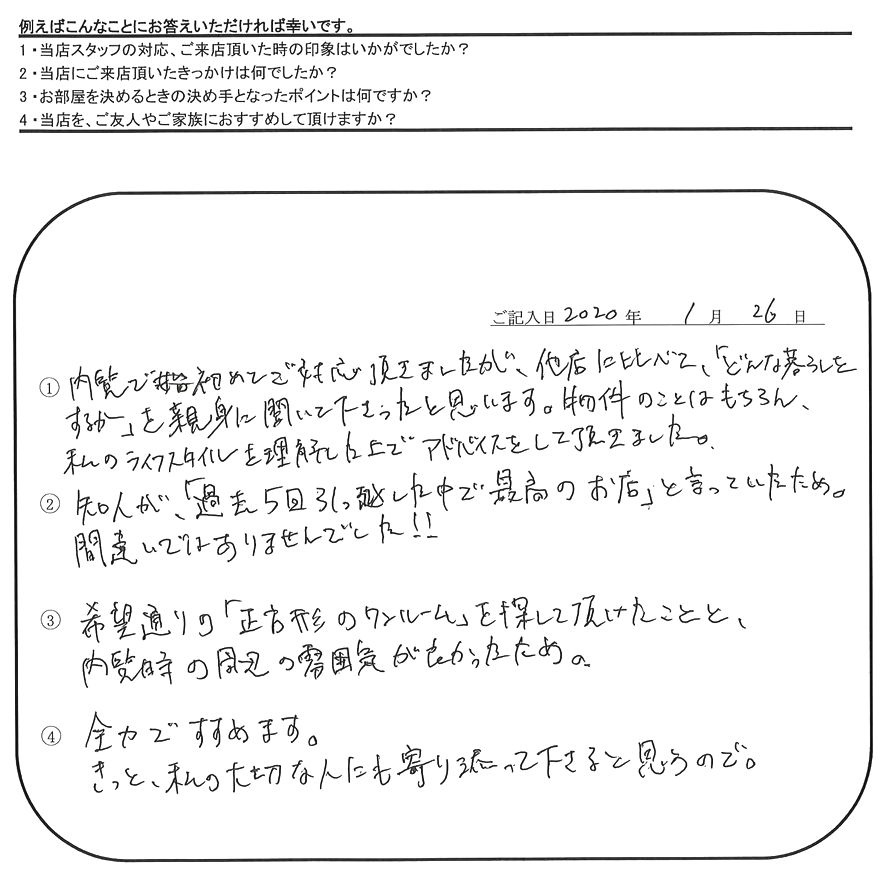 例えばこんなことにお答えいただければ幸いです。
1・当店スタッフの対応、ご来店頂いた時の印象はいかがでしたか？
2・当店にご来店頂いたきっかけは何でしたか？
3・お部屋を決めるときの決め手となったポイントは何ですか？
4・当店を、ご友人やご家族におすすめして頂けますか？
ご記入日 2020 年 1 月 26 日
① 内覧で初めてご対応頂きましたが、他店に比べて、「どんな暮らしを
するか」を親身に聞いて下さったと思います。物件のことはもちろん、
私のライフスタイルを理解した上でアドバイスをして頂きました。
② 知人が、「過去5回引っ越した中で最高のお店」と言っていたため。
間違いではありませんでした!!
③ 希望通りの「正方形のワンルーム」を探して頂けたことと、
内覧時の周辺の雰囲気が良かったため。
④ 全力ですすめます。
きっと、私の大切な人にも寄り添って下さると思うので。